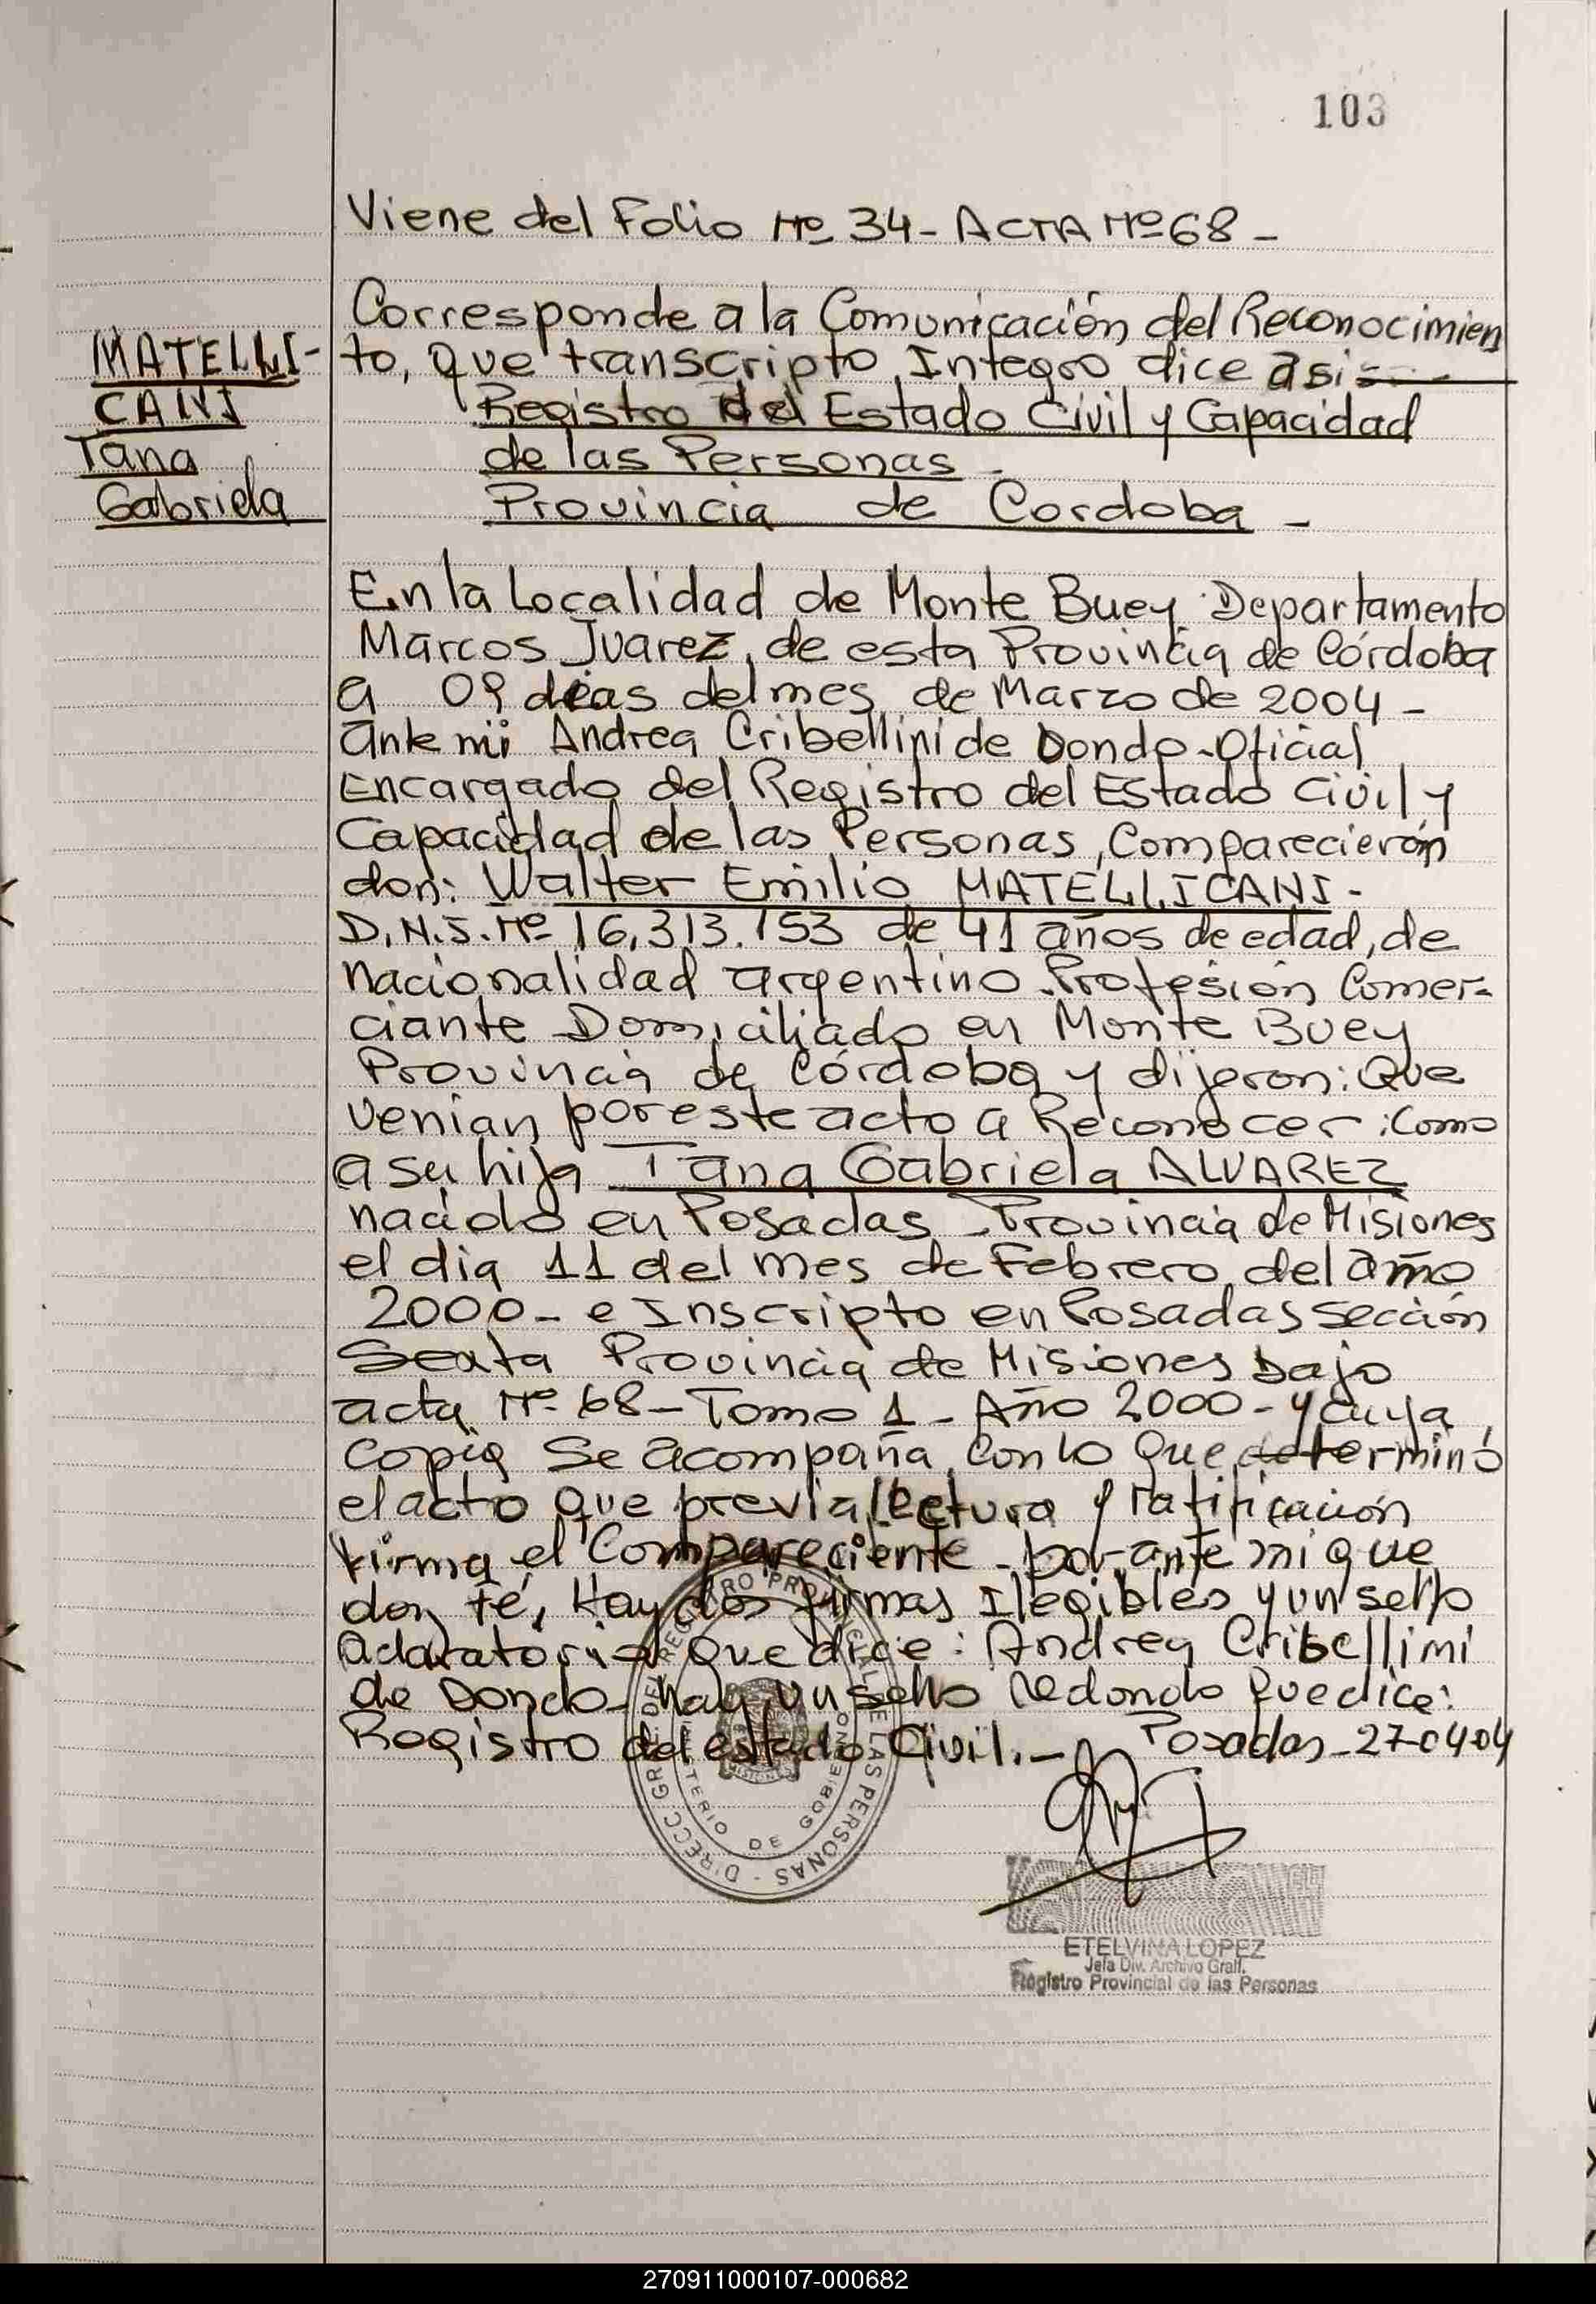 103
Viene del Folio Nº 34 - ACTA Nº 68 -
Corresponde a la Comunicación del Reconocimien
to, que transcripto Integro dice asi
MATELLI-
CANI
Tana
Gabriela
Registro del Estado Civil y Capacidad
de las Personas -
Provincia de Cordoba -
En la Localidad de Monte Buey Departamento
Marcos Juarez, de esta Provincia de Córdoba
a 09 dias del mes de Marzo de 2004 -
ante mi Andrea Cribellini de Dondo - Oficial
Encargado del Registro del Estado Civil y
Capacidad de las Personas, Comparecierón
don: Walter Emilio MATELLICANI -
D.N.I. Nº 16.313.153 de 41 años de edad, de
nacionalidad argentino - Profesión Comer-
ciante Domiciliado en Monte Buey
Provincia de Córdoba y dijeron: Que
venian por este acto a Reconocer: Como
a su hija Tana Gabriela ALVAREZ
nacido en Posadas - Provincia de Misiones
el dia 11 del mes de Febrero del año
2000 - e Inscripto en Posadas sección
Sexta Provincia de Misiones bajo
acta Nº 68 - Tomo 1 - Año 2000 - y cuya
Copia Se acompaña, con lo Que determinó
el acto que previa lectura y ratificación
firma el Compareciente - por ante mi que
doy fé, Hay dos firmas Ilegibles y un sello
aclaratorio que dice: Andrea Cribellini
de Dondo - hay un sello redondo que dice:
Registro del estado Civil. - Posadas - 27-04-04
DIRECC. GR. DEL REGISTRO PROVINCIAL DE LAS PERSONAS -
MINISTERIO DE GOBIERNO
MISIONES
ETELVINA LOPEZ
Jefa Div. Archivo Gral.
Registro Provincial de las Personas
270911000107-000682